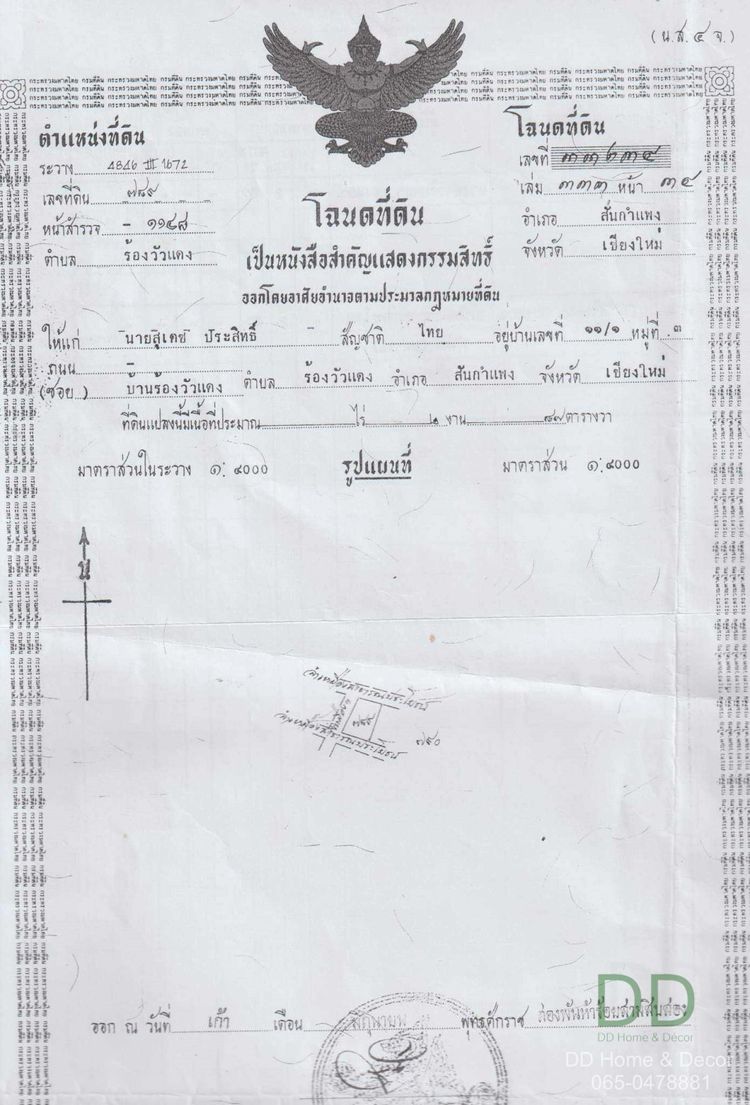 (น.ส.๔ จ.)
ตำแหน่งที่ดิน
ระวาง 4846 III 1672
เลขที่ดิน ๗๘๙
หน้าสำรวจ - ๑๑๔๘
ตำบล ร้องวัวแดง
โฉนดที่ดิน
เลขที่ ๓๓๒๓๔
เล่ม ๓๓๓ หน้า ๓๔
อำเภอ สันกำแพง
จังหวัด เชียงใหม่
โฉนดที่ดิน
เป็นหนังสือสำคัญแสดงกรรมสิทธิ์
ออกโดยอาศัยอำนาจตามประมวลกฎหมายที่ดิน
ให้แก่ นายสุเทพ ประสิทธิ์ - สัญชาติ ไทย อยู่บ้านเลขที่ ๑๑/๑ หมู่ที่ ๓
ถนน -
(ซอย) บ้านร้องวัวแดง ตำบล ร้องวัวแดง อำเภอ สันกำแพง จังหวัด เชียงใหม่
ที่ดินแปลงนี้มีเนื้อที่ประมาณ - ไร่ ๒ งาน ๘๗ ตารางวา
มาตราส่วนในระวาง ๑:๔๐๐๐ รูปแผนที่ มาตราส่วน ๑:๔๐๐๐
น
ลำเหมืองสาธารณประโยชน์
๗๘๙
ลำเหมืองสาธารณประโยชน์
๗๙๐
ออก ณ วันที่ เก้า เดือน พุทธศักราช สองพันห้าร้อยสามสิบสอง
DD
DD Home & Decor
DD Home & Decor
065-0478881